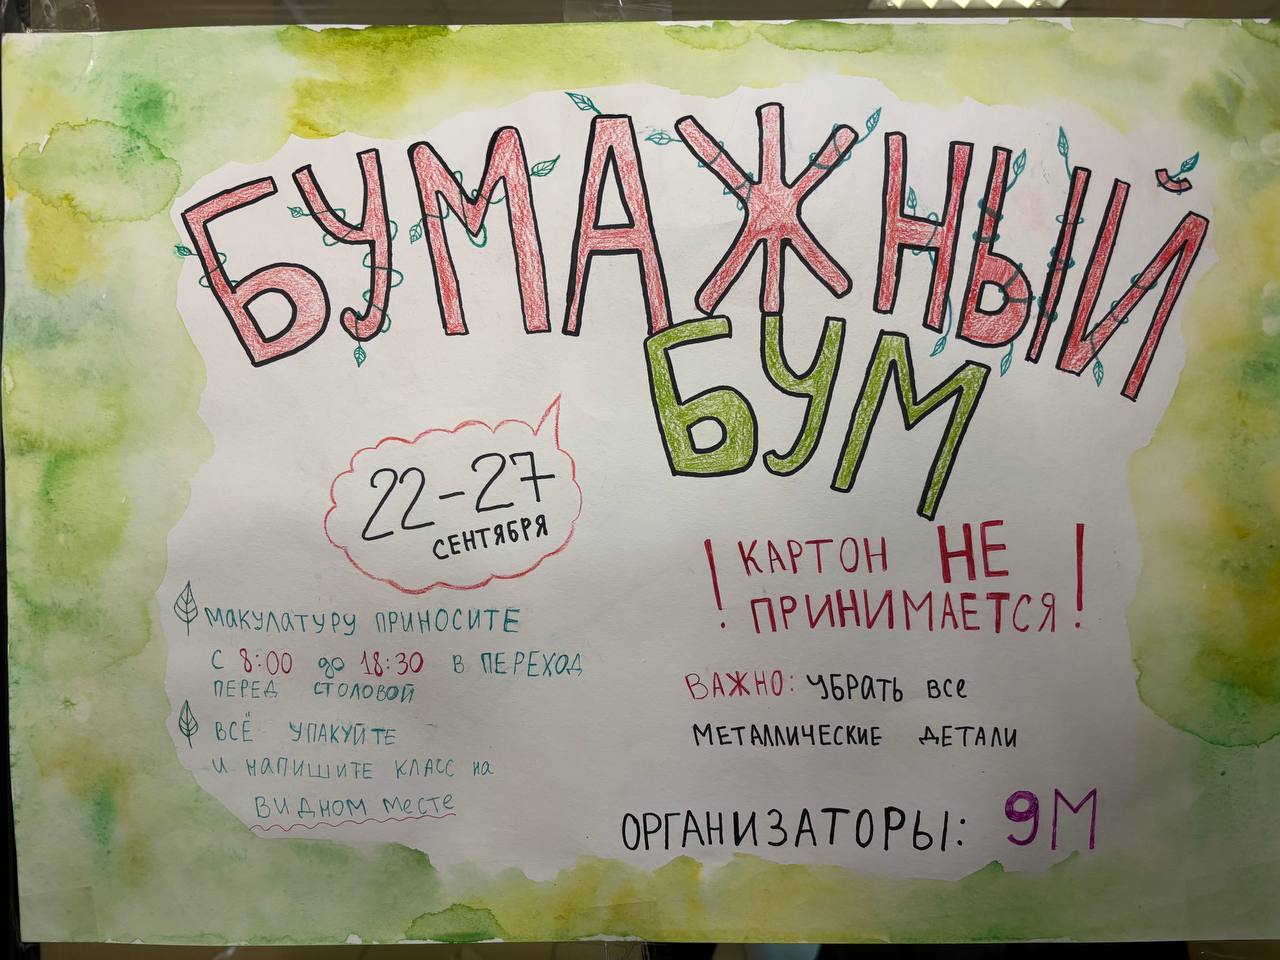 БУМАЖНЫЙ
БУМ
22-27
СЕНТЯБРЯ
МАКУЛАТУРУ ПРИНОСИТЕ
С 8:00 до 18:30 В ПЕРЕХОД
ПЕРЕД СТОЛОВОЙ
ВСЁ УПАКУЙТЕ
И НАПИШИТЕ КЛАСС на
ВИДНОМ МЕСТЕ
! КАРТОН НЕ
ПРИНИМАЕТСЯ !
ВАЖНО: УБРАТЬ ВСЕ
МЕТАЛЛИЧЕСКИЕ ДЕТАЛИ
ОРГАНИЗАТОРЫ: 9М